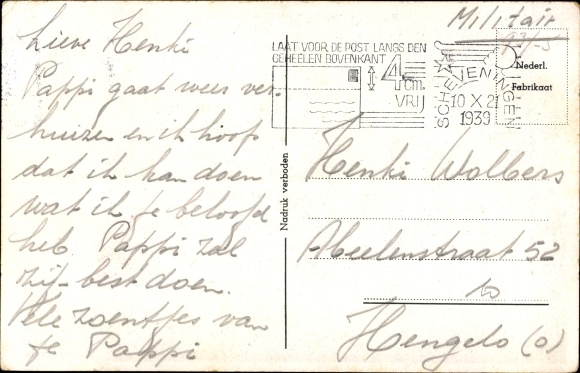 Militair
Lieve Henki
Pappi gaat weer ver-
huizen en ik hoop
dat ik kan doen
wat ik je beloofd
heb. Pappi zal
zij-best doen.
Vele zoentjes van
je Pappi
LAAT VOOR DE POST LANGS DEN
GEHEELEN BOVENKANT
4 cm.
VRIJ
SCHEVENINGEN
10 X 21
1939
Nederl.
Fabrikaat
Nadruk verboden
Henki Wolbers
Abeelenstraat 52
Hengelo (O)